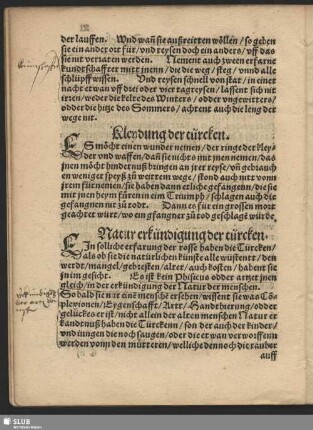 der lauffen. Vnd wañ sie außreitten wöllen / so geben
sie ein ander ort für / vnd reysen doch ein anders / vff das
sie nit verraten werden. Nement auch zween erfarne
kundtschaffter mitt jnenn / die die weg / steg / vnnd alle
schlüpff wissen. Vnd reysen schnell von stat / in einer
nacht etwan vff drei oder vier tagreysen / lassent sich nit
irren / weder die kelte des Winters / odder vngewitters /
odder die hitze des Sommers / achtent auch die leng der
wege nit.
Kleydung der türcken.
ES möcht einen wunder nemen / der ringe der kley-
der vnd waffen / dañ sie nichts mit jnen nemen / das
jnen möcht hindernuß bringen an jrer reyse / vñ gebrauch
en weniger speyß zů weittem wege / stond auch nitt vonn
jrem fürnemen / sie haben dann etliche gefangenn / die sie
mit jnen heym fürenn in ein Triumph / schlagen auch die
gefangnen nit zů todt. Dann es für ein grossen mort
geachtet würt / wo ein gfangner zů tod geschlagẽ würde.
Natur erkündigung der türcken.
EIn solliche erfarung der rosse haben die Türcken /
als ob sie die natürlichen künste alle wüstent / den
werdt / mangel / gebresten / alter / auch kosten / habent sie
jn im gesicht. Es ist kein Phisicus odder artzet jnen
gleich / in der erkündigung der Natur der menschen.
So bald sie nur einẽ mensche ersehen / wissent sie was Cõ
plexionen / Eygenschafft / Artt / Handthierung / odder
gelückes er ist / nicht allein der alten menschen Natur er
kandtnuß haben die Türckenn / son der auch der kinder /
vnd jungen die noch saugen / oder die etwan verworffenn
werden vonn den mütteren / welliche dennoch die rauber
auff
SLUB